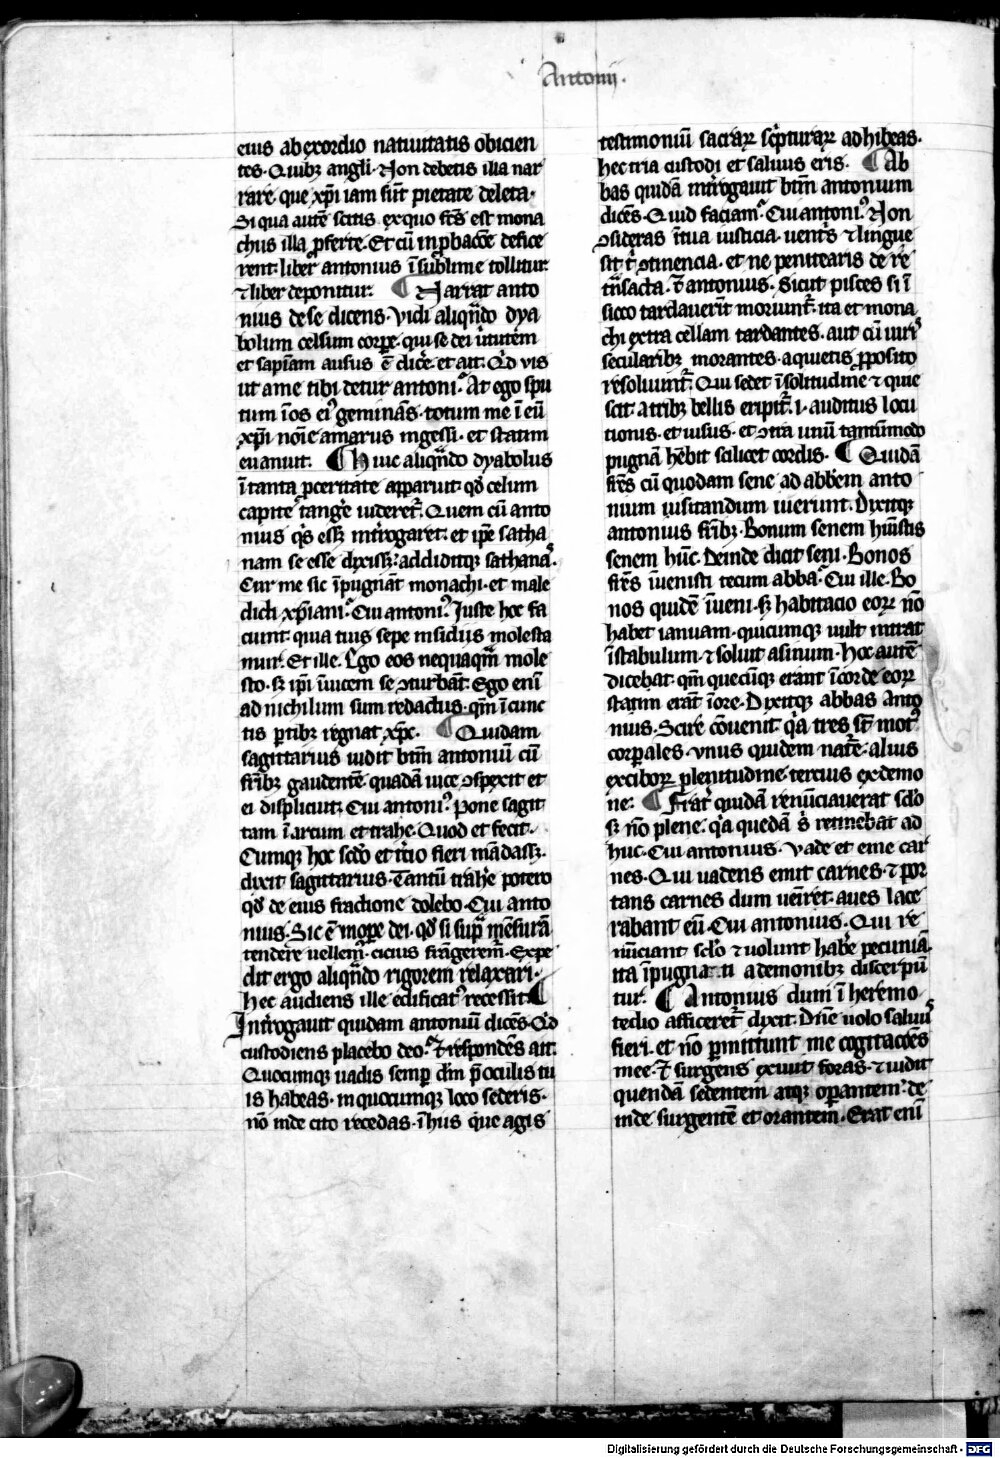 Antonij.
eius ab exordio natiuitatis obicien
tes. Quibꝫ angli. Non debetis illa nar
rare. que xp̄i iam sūt pietate deleta.
Si qua autē scitis ex quo fc̄s est mona
chus illa ꝓferte. Et cū in ꝓbacōe defice
rent. liber antonius ī sublime tollitur.
⁊ liber deponitur. ¶ Narrat anto
nius de se dicens. Vidi aliqn̄do dya
bolum celsum corꝑe. qui se dei ùtutem
et sapīam ausus ē dicˀe. et ait. Qͥd vis
ut a me tibi detur antoni. At ego spu
tum ī os eiꝰ geminās. totum me ī eū
xp̄i noīe armatus ingessi. et statim
euanuit. ¶ Huic aliqn̄do dyabolus
ī tanta ꝓceritate apparuit. qd̓ celum
capite tangˀe uideretͬ. Quem cū anto
nius qͥs essꝫ intˀrogaret. et ip̄e satha
nam se esse dixissꝫ. addiditqꝫ sathanaˢ.
Cur me sic īpugnāt monachi. et male
dicti xp̄iani. Cui antoniꝰ. Iuste hoc fa
ciunt. quia tuis sepe insidiis molesta
nturͬ. Et ille. Ego eos nequaqͣm mole
sto. sꝫ ip̄i īuicem se ꝯturbāt. Ego enī
ad nichilum sum redactus. qm̄ ī cunc
tis ꝑtibꝫ regnat xp̄c. ¶ Quidam
sagittarius uidit btm̄ antoniū cū
fr̄ibꝫ gaudentē quadā uice ꝯspexit et
ei displicuit. Cui antoniꝰ. Pone sagit
tam ī arcum et trahe. Quod et fecit.
Cumqꝫ hoc scd̓o et tͥcio fieri mādassꝫ.
dixit sagittarius. Tantū trahˀe potero
qd̓ de eius fractione dolebo. Cui anto
nius. Sic ē ī oꝑe dei. qd̓ si supͣ mēsurā
tendere uellemꝰ. cicius frāgeremꝰ. Expe
dit ergo aliqn̄do rigorem relaxari.
Hec audiens ille edificatꝰ recessit. ¶
Intˀrogauit quidam antoniū dicēs. Qͥd
custodiens placebo deo. ⁊ respondēs ait.
Quocumqꝫ uadis semꝑ dm̄ p̄ oculis tu
is habeas. in quocumqꝫ loco sederis.
nō inde cito recedas. ī hiis que agis
testimoniū sacraꝝ scͥpturaꝝ adhibeas.
hec tria custodi et saluus eris. ¶ Ab
bas quidā intˀrogauit btm̄ antonium
dicēs. Quid faciam. Cui antoniꝰ. Non
ꝯfideras ī tua iusticia. uentˀs ⁊ lingue
sit tͥ ꝯtinencia. et ne penitearis de re
tn̄sacta. ⁊ antonius. Sicut pisces si ī
sicco tardauerīt moriuntͬ. ita et mona
chi extra cellam tardantes. aut cū uiriˢ
secularibꝫ morantes. a quietis ꝓposito
resoluuntͬ. Qui sedet ī solitudine ⁊ quie
scit. a tribꝫ bellis eripitͬ. i. auditus locu
tionis. et uisus. et ꝯtra unū tantūmodo
pugnā hēbit scilicet cordis. ¶ Quidā
fr̄es cū quodam sene ad abbˀem anto
nium uisitandum iuerunt. Dixitqꝫ
antonius fr̄ibꝫ. Bonum senem hūistis
senem hūc. Deinde dicit seni. Bonos
fr̄es īuenisti tecum abba. Cui ille. Bo
nos quidē īueni. sꝫ habitacio eoꝝ nō
habet ianuam. quicumqꝫ uult intrat
ī stabulum. ⁊ soluit asinum. Hoc autē
dicebat. qm̄ quecūqꝫ erant ī corde eoꝝ
statim erāt ī ore. Dixitqꝫ abbas anto
nius. Scire cōuenit. qͥa tres sūt motꝰ
corꝑales. Vnus quidem natˀe. alius
ex ciboꝝ plenitudine. tercius ex demo
ne. ¶ Fratˀ quidā renūciauerat scl̓o
sꝫ nō plene. qͥa quedā sͥ retinebat ad
huc. Cui antonius. Vade et eme car
nes. Qui uadens emit carnes. ⁊ por
tans carnes dum ueīret. aues lace
rabant eū. Cui antonius. Qui re
nūciant scl̓o ⁊ uolunt habˀe pecuniā.
ita īpugnati a demonibꝫ discerpūt
tur. ¶ Antonius dum ī heremo
tedio afficeretͬ dixit. Dn̄e uolo saluuˢ
fieri. et nō ꝑmittunt me cogitacōes
mee. ⁊ surgens exiuit foras. ⁊ uidit
quendā sedentem atqꝫ oꝑantem. de
inde surgentē et orantem. Erat enī
Digitalisierung gefördert durch die Deutsche Forschungsgemeinschaft - DFG